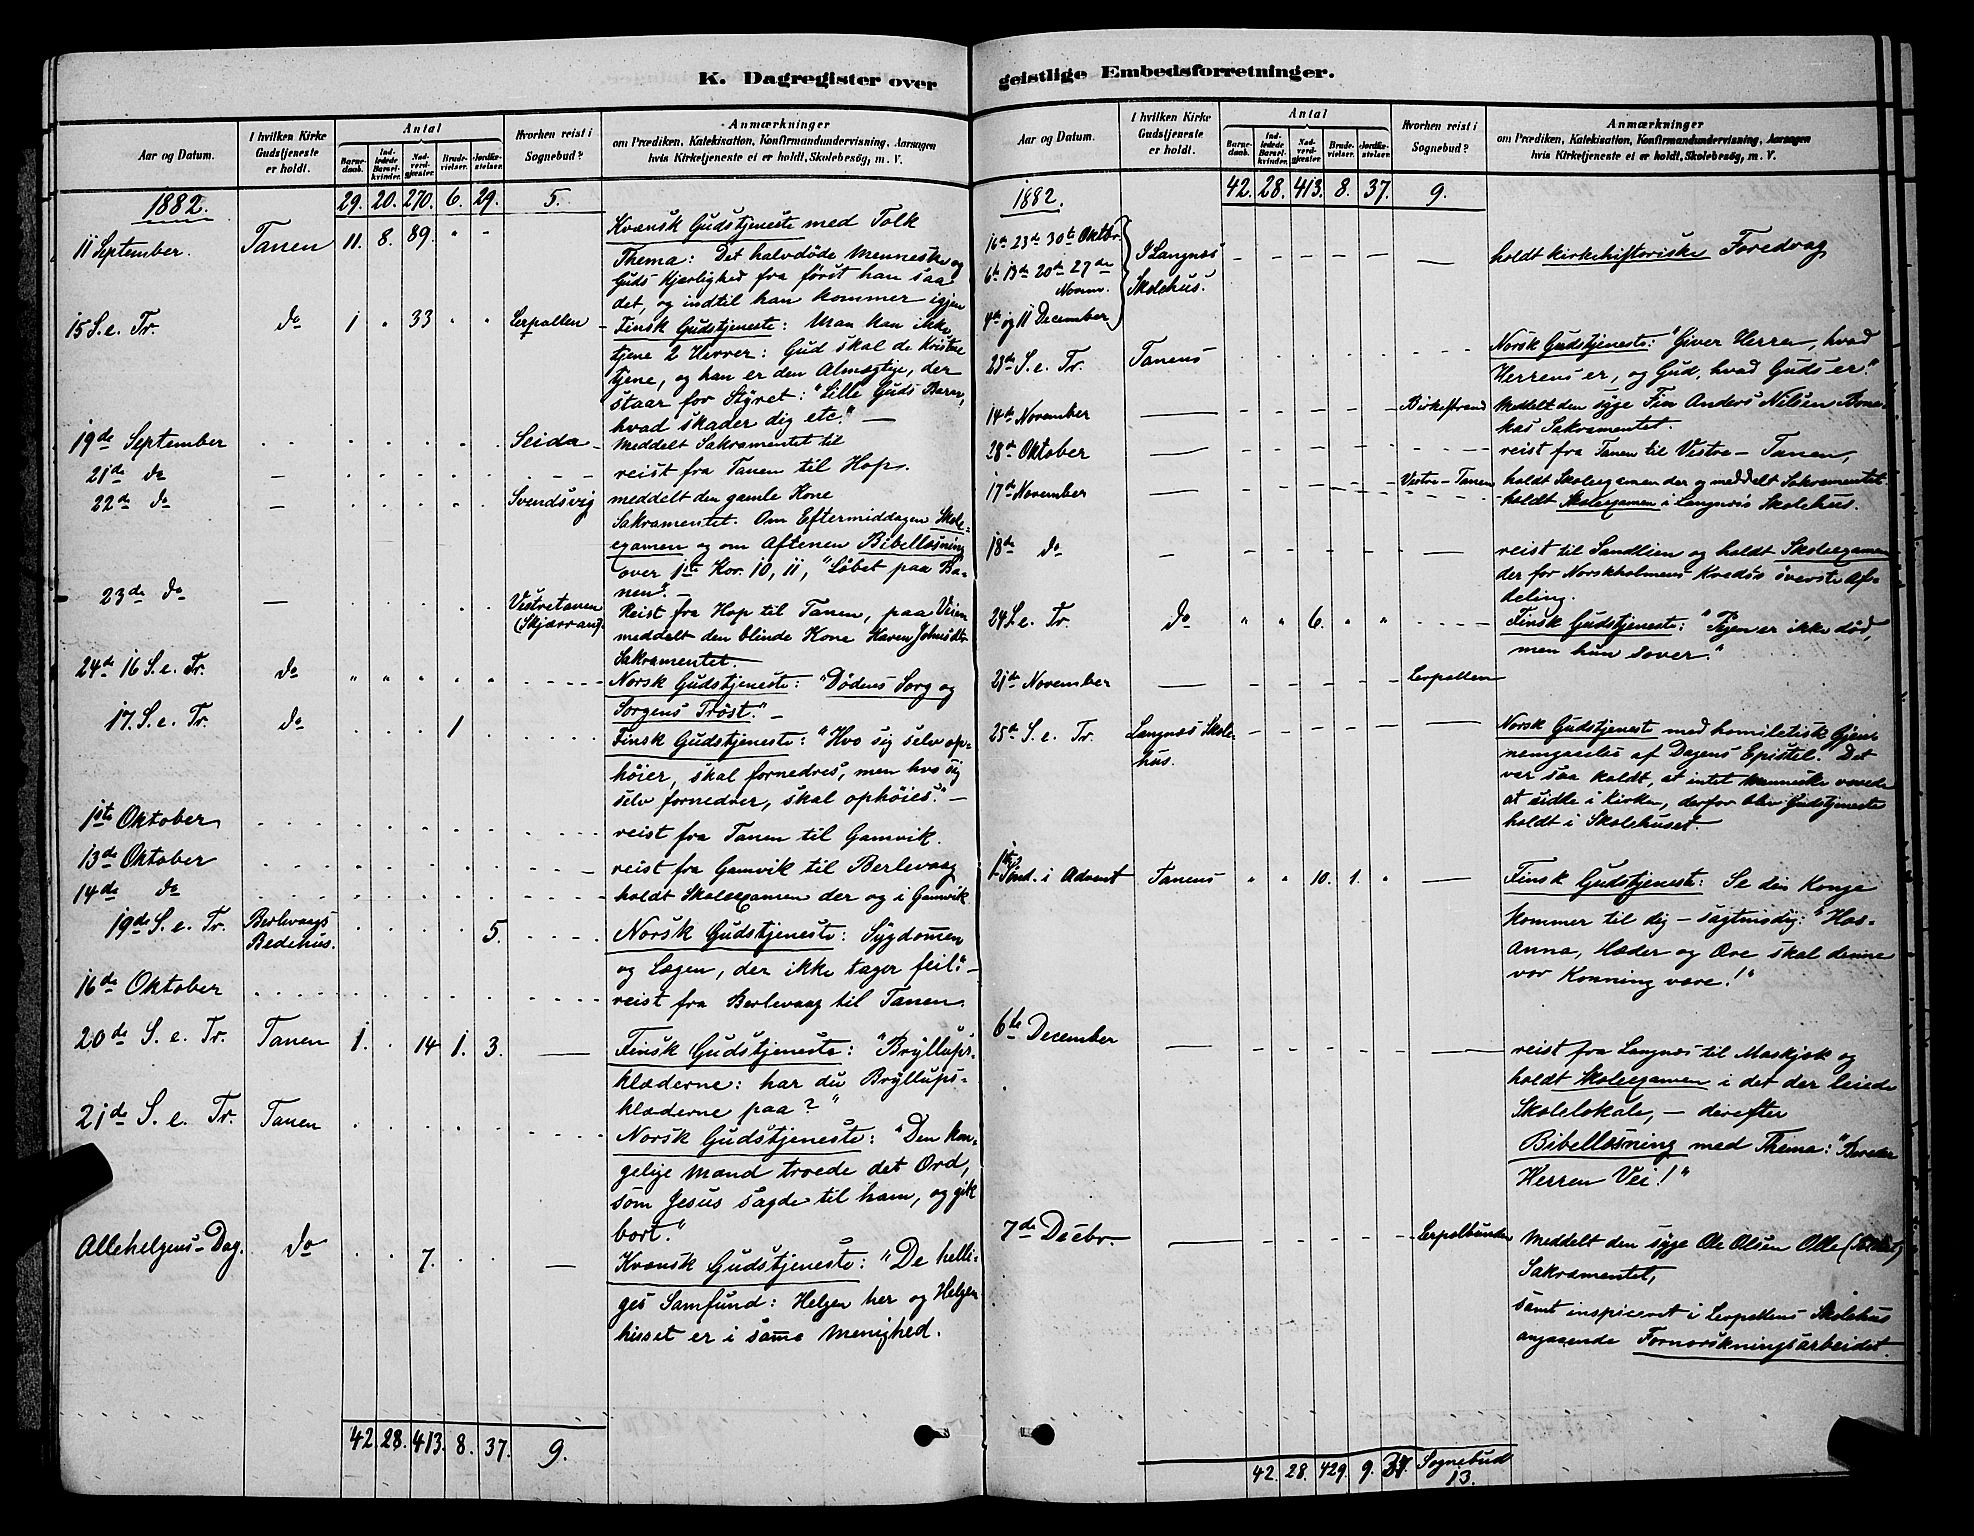 K. Dagregister over
Aar og Datum.
I hvilken Kirke Gudstjeneste er holdt.
Antal
Barnedaab.
Indledede Barselkvinder.
Nadverdgjæster.
Brudevielser.
Jordfæstelser.
Hvorhen reist i Sognebud?
Anmærkninger
om Prædiken, Katekisation, Konfirmandundervisning, Aarsagen
hvis Kirketjeneste ei er holdt, Skolebesøg, m. V.
1882. 29. 20. 270. 6. 29. 5.
11 September. Tanen 11. 8. 89. " - Kvænsk Gudstjeneste med Tolk
Thema: Det halvdöde Menneske og
Guds Kjærlighed fra först han saa
det, og indtil han kommer igjen
15 S. e. Tr. do 1 " 33 " " Lerpollen - Finsk Gudstjeneste: Man kan ikke
tjene 2 Herrer: Gud skal de Kristne
tjene, og han er den Almægtige, der
staar for Styret: "Lille Guds Barn,
hvad skader dig etc." —
19de September Seida - Meddelt Sakramentet til
21de do — reist fra Tanen til Hop.
22de do — Svendsvig meddelt den gamle Kone
Sakramentet. Om Eftermiddagen Skole-
examen og om Aftenen Bibellæsning
over 1ste Kor. 10, 11, "Löbet paa Ba-
nen". —
23de do — Vestretanen (Skjærran). Reist fra Hop til Tanen, paa Veien
meddelt den blinde Kone Karen Johnsdtr
Sakramentet.
24de 16 S. e. Tr. do " " " " " Norsk Gudstjeneste: "Dödens Sorg og
Sorgens Tröst." —
17. S. e. Tr. do 1 Finsk Gudstjeneste: "Hvo sig selv op-
höier, skal fornedres, men hvo sig
selv fornedrer, skal ophöies." —
1ste Oktober reist fra Tanen til Gamvik.
13de Oktober reist fra Gamvik til Berlevaag
14de do holdt Skoleexamen der og i Gamvik
19de S. e. Tr. Berlevaags Bedehus. 5. Norsk Gudstjeneste: Sygdomen
og Lægen, der ikke tager feil." —
16de Oktober reist fra Berlevaag til Tanen.
20de S. e. Tr. Tanen 1. . 14 1. 3. — Finsk Gudstjeneste: "Bryllups-
klæderne: har du Bryllups-
klæderne paa?"
21de S. e. Tr. Tanen Norsk Gudstjeneste: "Den kon-
gelige Mand troede det Ord,
som Jesus sagde til ham, og gik
bort."
Allehelgens-Dag. do 7. — Kvænsk Gudstjeneste: "De helli-
ges Samfund: Helgen her og Helgen
hisset er i samme Menighed.
42. 28. 413. 8. 37. 9.
geistlige Embedsforretninger.
Aar og Datum.
I hvilken Kirke Gudstjeneste er holdt.
Antal
Barnedaab.
Indledede Barselkvinder.
Nadverdgjæster.
Brudevielser.
Jordfæstelser.
Hvorhen reist i Sognebud?
Anmærkninger
om Prædiken, Katekisation, Konfirmandundervisning, Aarsagen
hvis Kirketjeneste ei er holdt, Skolebesøg, m. V.
1882. 42. 28. 413. 8. 37. 9.
16de 23de 30te Oktbr. I Langnæs Skolehus. — holdt kirkehistoriske Foredrag
6te 13de 20de 27de Novem.
4de og 11 December
23de S. e. Tr. Tanens Norsk Gudstjeneste: "Giver Herren, hvad
Herrens er, og Gud, hvad Guds er."
14de November — Birkestrand Meddelt den syge Fin Anders Nilsen
Sakramentet.
28de Oktober — reist fra Tanen til Vestre-Tanen,
17de November — Vestre-Tanen holdt Skoleexamen der og meddelt Sakramentet
holdt Skoleexamen i Langnæs Skolehus.
18de do — reist til Sandlien og holdt Skoleexamen
der for Norskholmens Kredös överste Af-
deling.
24 S. e. Tr. do " " 6. " " Finsk Gudstjeneste: "Pigen er ikke död,
men hun sover."
21de November — Lerpollen
25de S. e. Tr. Langnæs Skole-hus. — Norsk Gudstjeneste med homiletisk Gjen-
nemgaaelse af Dagens Epistel. Det
var saa koldt, at intet Menneske vovede
at sidde i Kirken, derfor blev Gudstjeneste
holdt i Skolehuset.
1ste Sönd. i Advent Tanens " " 10. 1. " — Finsk Gudstjeneste: Se din Konge
kommer til dig — sagtmodig: "Hos-
Anna, Hæder og Ære skal denne
vor Konning være!"
6te December — reist fra Langnæs til Maskjok og
holdt Skoleexamen i det der leiede
Skolelokale, — derefter
Bibellæsning med Thema: "Bereder
Herren Vei!"
7de Decbr. — Lerpolbunden Meddelt den syge Ole Olsen Olle
Sakramentet,
samt inspiceret i Lerpollens Skolehus
angaaende Fornorskningsarbeidet.
42. 28. 429. 9. 37. Sognebud 13.